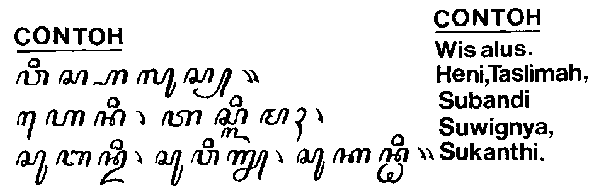 CONTOH
ꦮꦶꦱ꧀ꦲꦭꦸꦱ꧀꧉
ꦲꦺꦤꦶ꧈ ꦠꦱ꧀ꦭꦶꦩꦃ꧈
ꦱꦸꦧꦤ꧀ꦢꦶ꧈ ꦱꦸꦮꦶꦒ꧀ꦚ꧈ ꦱꦸꦏꦤ꧀ꦛꦶ꧉
CONTOH
Wis alus.
Heni,Taslimah,
Subandi
Suwignya,
Sukanthi.